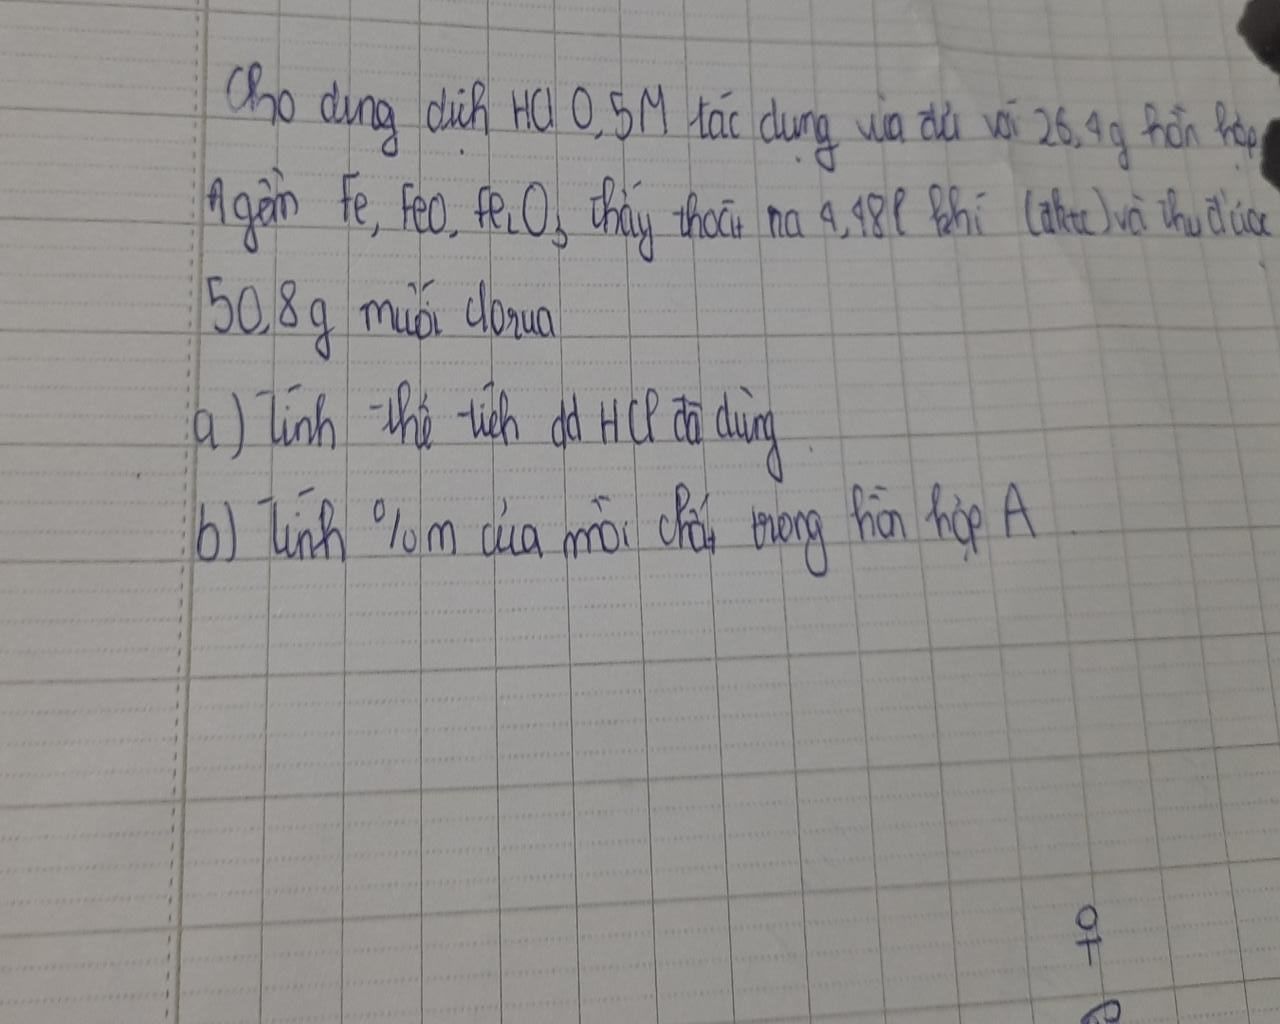 Cho dung dịch HCl 0,5M tác dụng vừa đủ với 26,4g hỗn hợp
A gồm Fe, FeO, Fe2O3 thấy thoát ra 4,48l khí (đktc) và thu được
50,8g muối clorua
a) Tính thể tích dd HCl đã dùng
b) Tính %m của mỗi chất trong hỗn hợp A